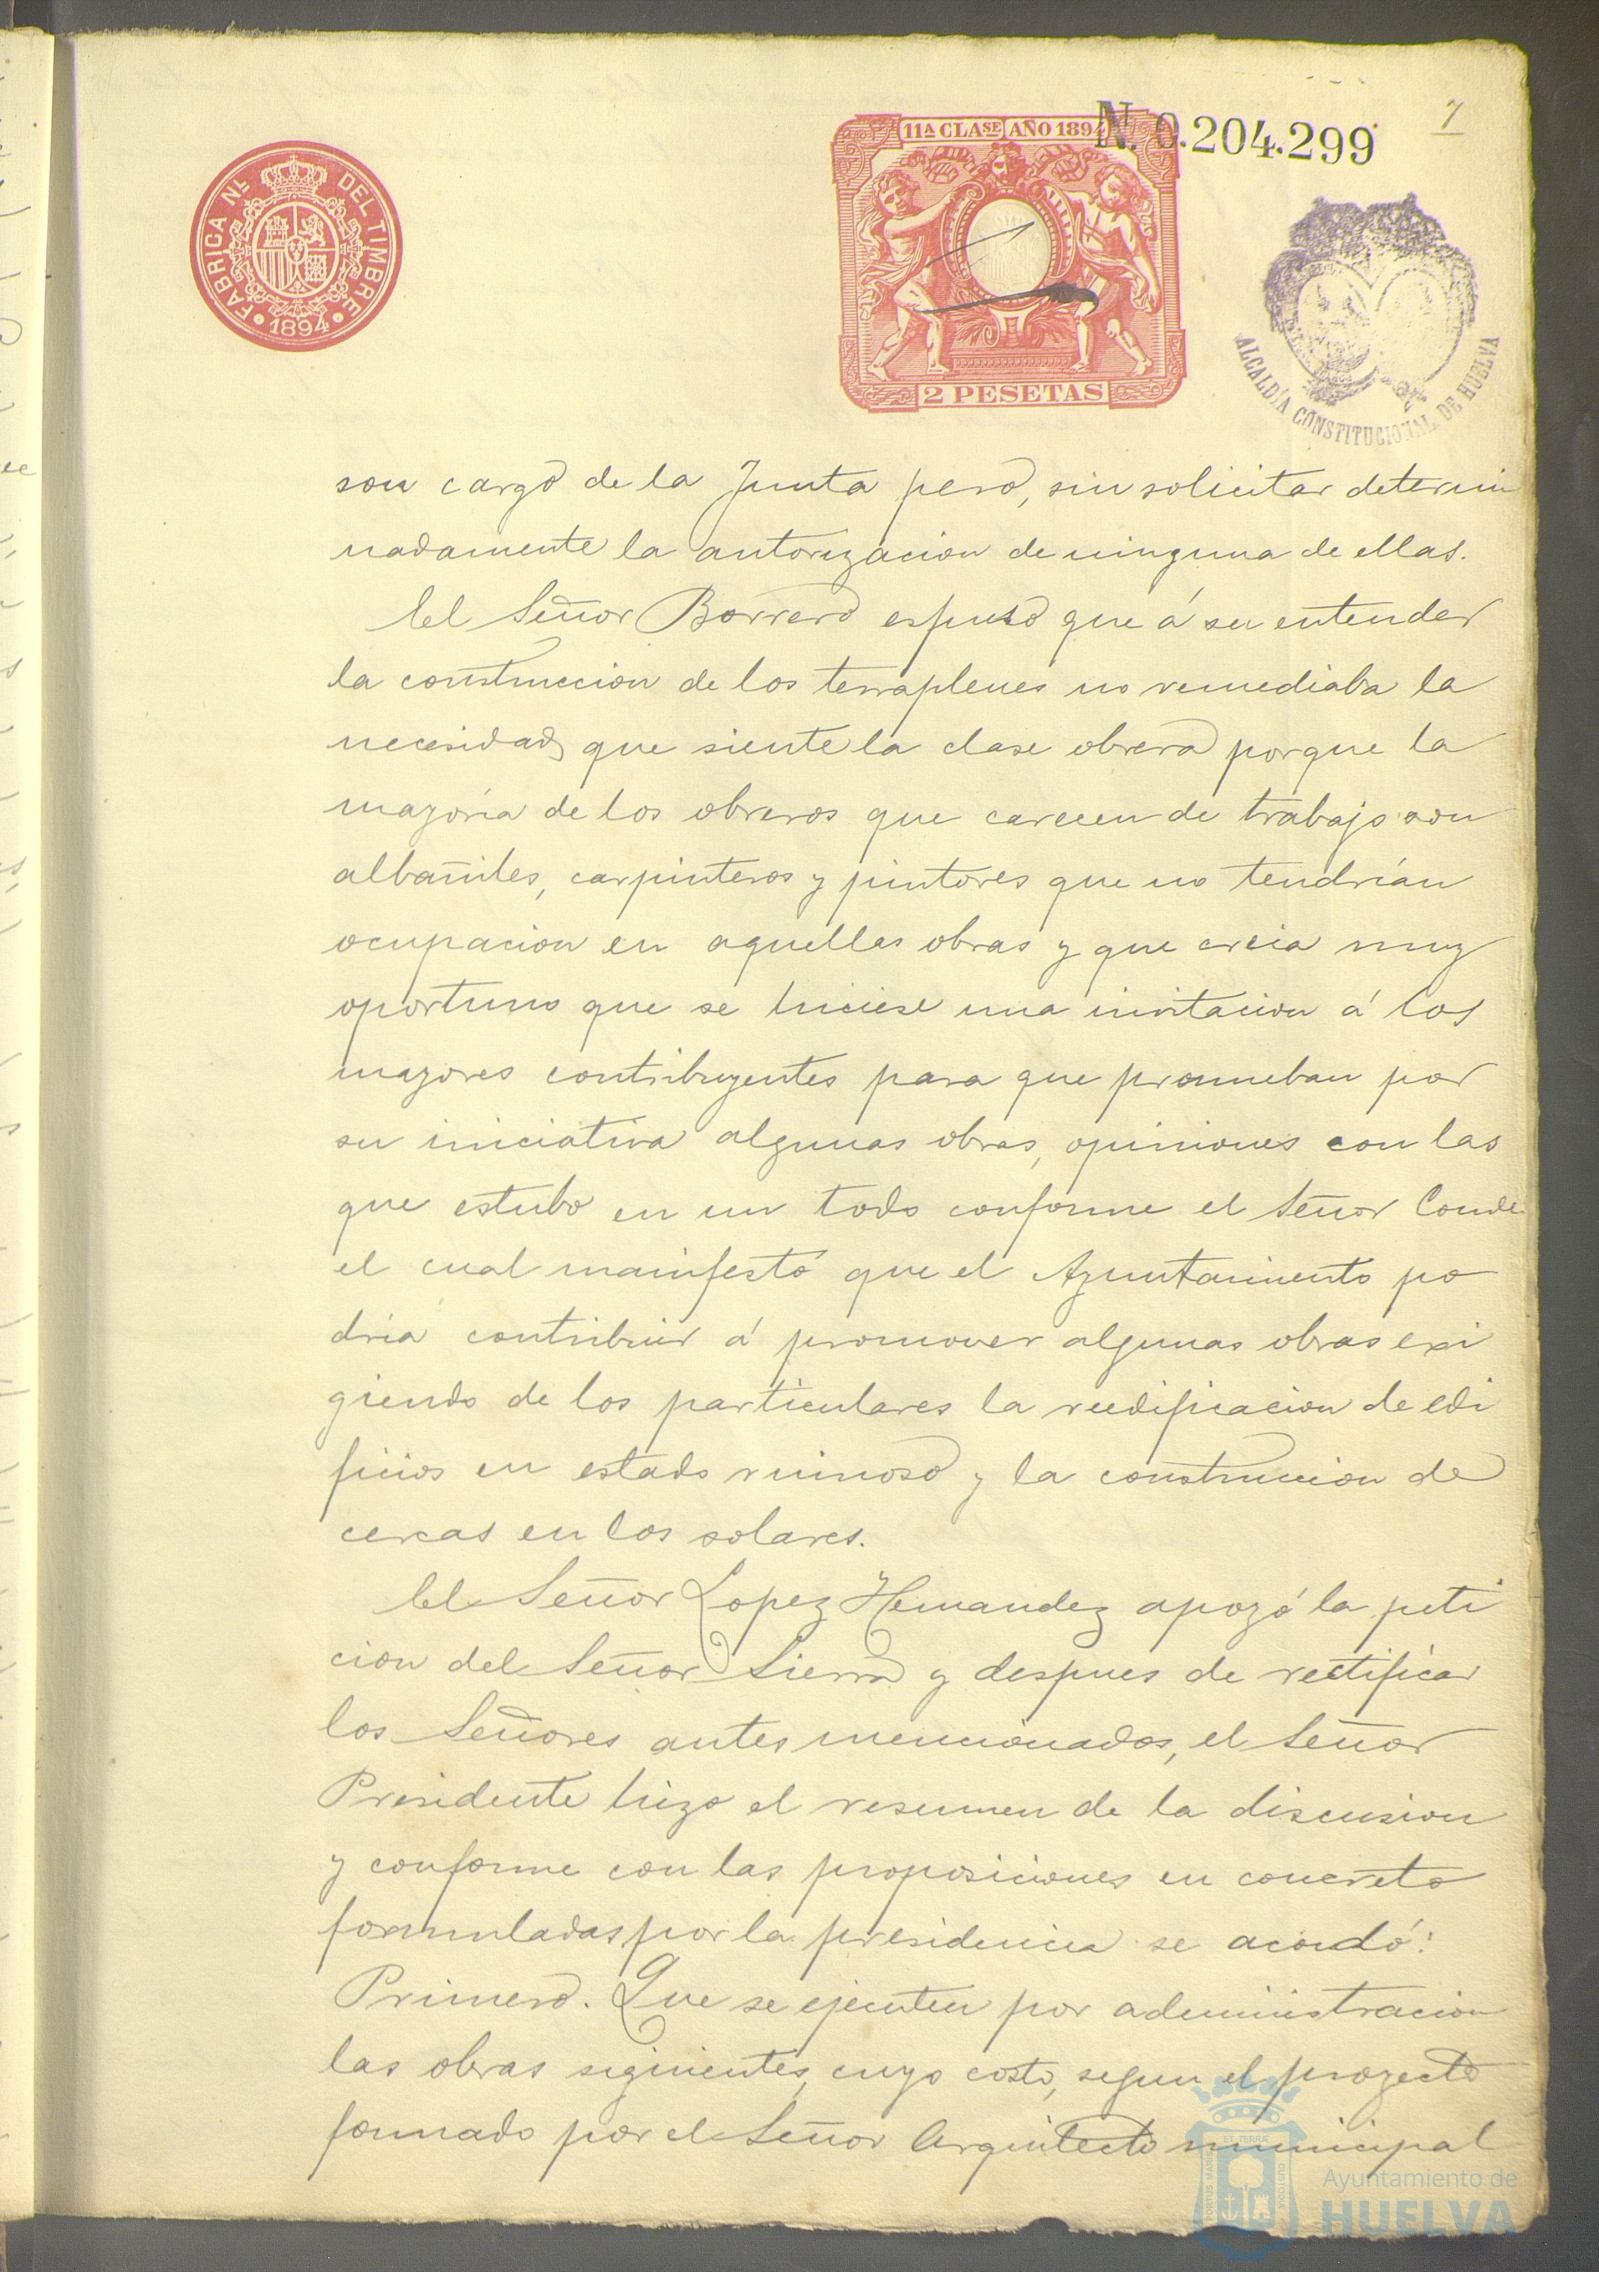 7
11ª CLASE AÑO 1894
N. 0.204.299
FABRICA NL DEL TIMBRE
1894
2 PESETAS
ALCALDÍA CONSTITUCIONAL DE HUELVA
son cargo de la Junta pero, sin solicitar determi
nadamente la autorizacion de ninguna de ellas.
El Señor Borrero espuso que á su entender
la construccion de los terraplenes no remediaba la
necesidad que siente la clase obrera porque la
mayoría de los obreros que carecen de trabajo son
albañiles, carpinteros y pintores que no tendrían
ocupacion en aquellas obras y que creia muy
oportuno que se hiciese una invitacion á los
mayores contribuyentes para que promueban por
su iniciativa algunas obras, opiniones con las
que estubo en un todo conforme el Señor Conde
el cual manifestó que el Ayuntamiento po
dria contribuir á promover algunas obras exi
giendo de los particulares la reedificacion de edi
ficios en estado ruinoso y la construccion de
cercas en los solares.
El Señor Lopez Hernandez apoyó la peti
cion del Señor Sierra y despues de rectificar
los Señores antes mencionados, el Señor
Presidente hizo el resumen de la discusion
y conforme con las proposiciones en concreto
formuladas por la presidencia se acordó:
Primero. Que se ejecuten por administracion
las obras siguientes, cuyo costo, segun el proyecto
formado por el Señor Arquitecto municipal
Ayuntamiento de
HUELVA